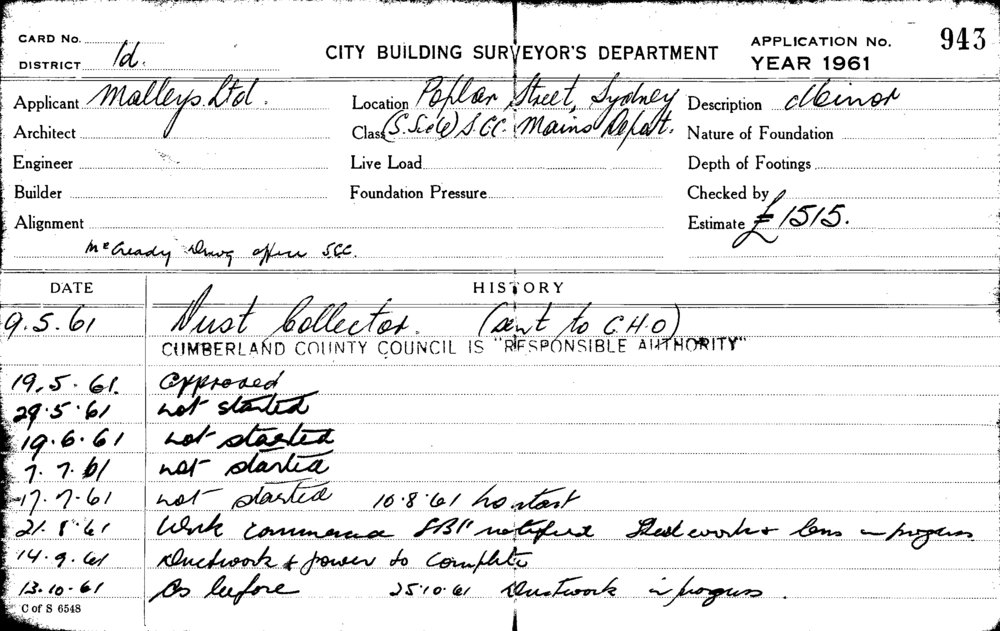 CARD No.
DISTRICT 1d.
CITY BUILDING SURVEYOR'S DEPARTMENT
APPLICATION No. 943
YEAR 1961
Applicant Malleys Ltd. Location Poplar Street, Sydney Description Minor
Architect Class S.C.C. Mains Depot. Nature of Foundation
Engineer Live Load Depth of Footings
Builder Foundation Pressure Checked by
Alignment Estimate £1515.
McCready Drwg office SCC.
DATE HISTORY
9.5.61 Dust Collector. (sent to C.H.O)
CUMBERLAND COUNTY COUNCIL IS "RESPONSIBLE AUTHORITY"
19.5.61. approved
29.5.61 not started
19.6.61 not started
7.7.61 not started
17.7.61 not started 10.8.61 no start
21.8.61 Work commenced notified Steel work in progress
14.9.61 Ductwork & power to complete
13.10.61 As before 25.10.61 Ductwork in progress.
C of S 6548